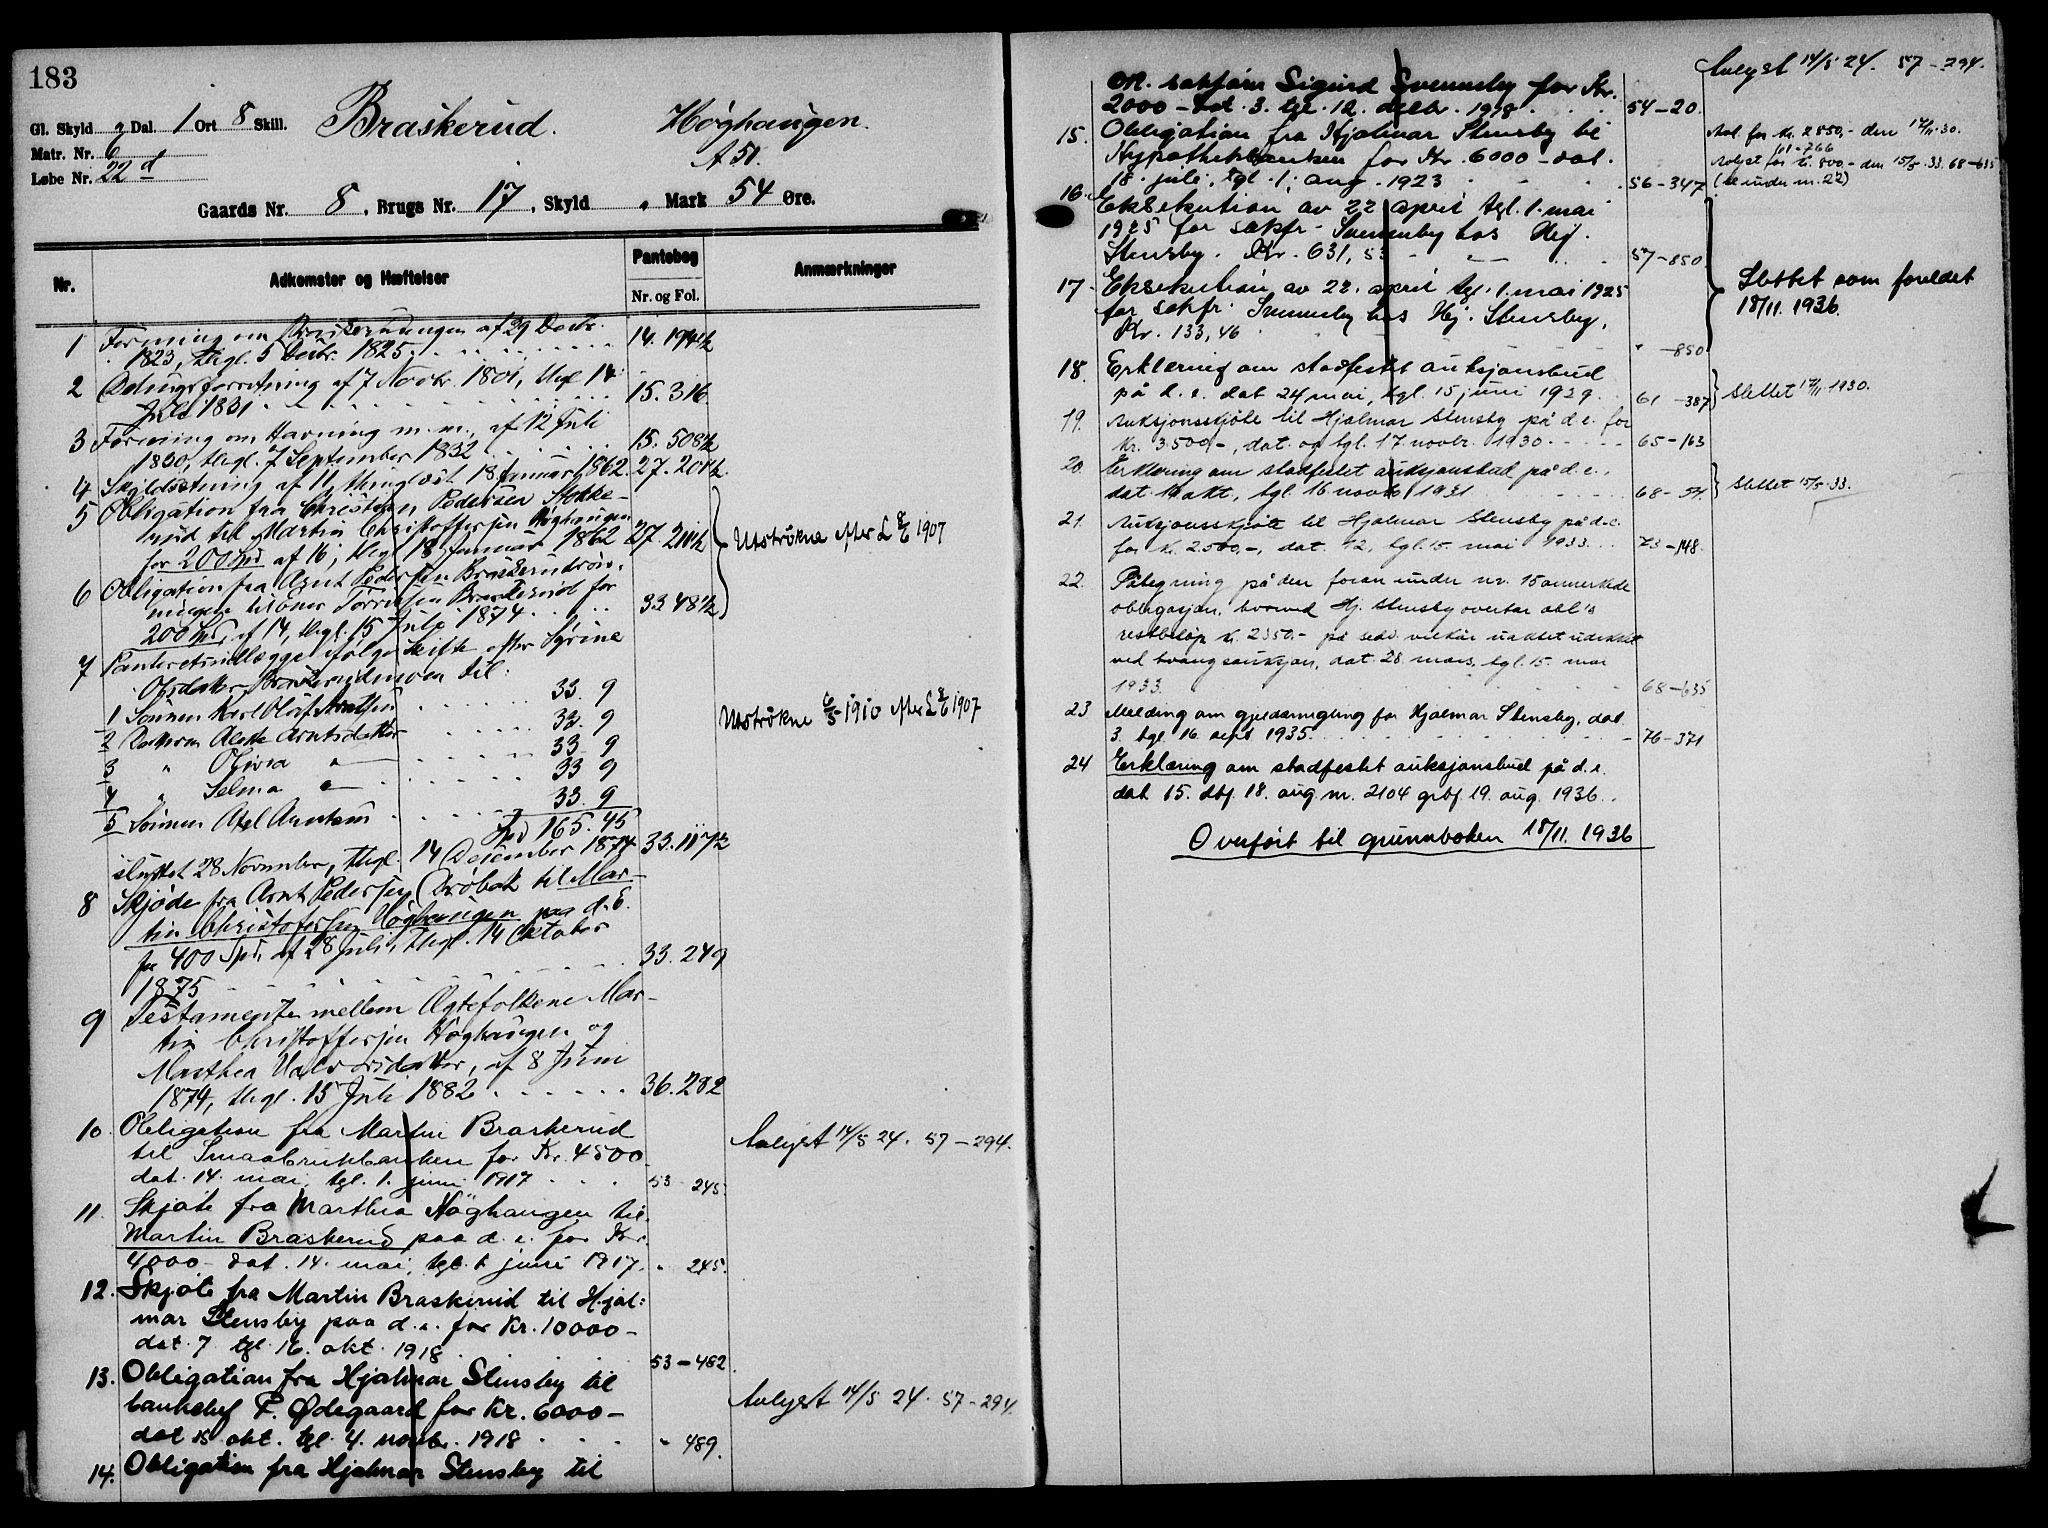 183
Gl. Skyld 2 Dal. 1 Ort 8 Skill. Braskerud. Høghaugen.
Matr. Nr. 6 A 51.
Løbe Nr. 22 d
Gaards Nr. 8, Brugs Nr. 17, Skyld " Mark 54 Øre.
Nr. Adkomster og Hæftelser Pantebog Anmærkninger
Nr. og Fol.
1 Forening om af 29 Decbr.
1823, thgl. 5 Decbr. 1825 14. 194 1/2
2 Delingsforretning af 7 Novbr. 1801, thgl 14
Juli 1831 15. 316
3 Forening om Havning m. m., af 12 Juli
1830, thgl. 7 September 1832 15. 508 1/2
4 Skyldsetning af 11, thinglæst 18 Januar 1862. 27. 201 1/2
5 Obligation fra Christian Pedersen Stokke-
rud til Martin Christoffersen Høghaugen
for 200 Spd af 16, thgl 18 Januar 1862 27. 211 1/2 Utstrøkne efter L 8/6 1907
6 Obligation fra Arnt Pedersen
til Torvildsen Braskerud for
200 Spd, af 14, thgl. 15 Juli 1874 33. 48 1/2
7 Panteretsudlægge ifølge Skifte efter Syrine
Olsdatter til:
1 Sønnen Karl Olaf Arntsen 33. 9
2 Datteren Alette Arntsdatter 33. 9 Utstrøkne 6/5 1910 efter L 8/6 1907
3 " Olivia " 33. 9
4 " Selma " 33 9
5 Sønnen Axel Arntsen 33. 9
Spd 165. 45
sluttet 28 November, thgl. 14 December 1874 33. 117 1/2
8 Skjøde fra Arnt Pedersen Drøbak til Mar-
tin Christofersen Høghaugen paa d. E.
for 400 Spd. af 28 Juli, thgl. 14 Oktober
1875 33. 249
9 Testamente mellem Ægtefolkene Mar-
tin Christoffersen Høghaugen og
Marthea Halvorsdatter, af 8 Juni
1874, thgl. 15 Juli 1882 36. 282
10. Obligation fra Martin Braskerud
til Smaabrukbanken for Kr. 4500 Avlyst 14/5 24. 57-294.
dat. 14. mai, tgl. 1. juni 1917 53 245
11. Skjøte fra Marthea Høghaugen til
Martin Braskerud paa d. e. for Kr.
4000- dat. 14. mai, tgl. 1 juni 1917. " 245.
12. Skjøte fra Martin Braskerud til Hjal:
mar Stensby paa d. e. for Kr. 10000-
dat. 7 tgl. 16. okt. 1918 53-482
13. Obligation fra Hjalmar Stensby til
bankchef F. Ødegaard for Kr. 6000- Avlyst 14/5 24. 57-294.
dat 15 okt. tgl. 4. novbr. 1918 " 489.
14. Obligation fra Hjalmar Stensby til
Avlyst 14/5 24. 57-294.
O.R. sakfører Sigurd Svennsby for Kr.
2000- dat. 3. tgl. 12. decbr. 1918 54-20.
15. Obligation fra Hjalmar Stensby til Avl. for kr. 2850,- den 14/11. 30.
Hypothekbanken for Kr. 6000- dat. 61-766
Avlyst for kr. 800,- den 15/5. 33. 68-635
18. juli, tgl. 1. aug. 1923 56-347 (se under nr. 22)
16. Eksekution av 22 april tgl. 1. mai
1925 for sakfr. Svennsby hos Hj.
Stensby. Kr. 631,53 57-850
17. Eksekution av 22. april tgl. 1. mai 1925 Slettet som foreldet
for sakfr. Svennsby hos Hj. Stensby. 18/11. 1936.
Kr. 133,46 " -850
18. Erklæring om stadfestet auksjonsbud
på d. e. dat 24 mai, tgl. 15 juni 1929. 61 -387 Slettet 17/11. 1930.
19. Auksjonsskjøte til Hjalmar Stensby på d. e. for
kr. 3500,-, dat. og tgl. 17. novbr. 1930. 65-163
20. Erklæring om stadfestet auksjonsbud på d. e.
dat. 19 okt, tgl. 16 novbr 1931 68-54 Slettet 15/5. 33.
21. Auksjonsskjøte til Hjalmar Stensby på d. e.
for kr. 2500,-, dat. 12, tgl. 15. mai 1933. 73-148.
22. Påtegning på den foran under nr. 15 anmerkede
obligasjon, hvorved Hj. Stensby overtar obl's
restbeløp kr. 2350,- på vilkår
ved tvangsauksjon, dat. 28. mars, tgl. 15. mai
1933. 68-635
23 Melding om gjeldsregling for Hjalmar Stensby, dat
3. tgl. 16. sept 1935. 76-371
24 Erklæring om stadfestet auksjonsbud på d. e.
dat 15. dbf. 18. aug. nr. 2104 grbf. 19. aug. 1936.
Overført til grunnboken 18/11. 1936